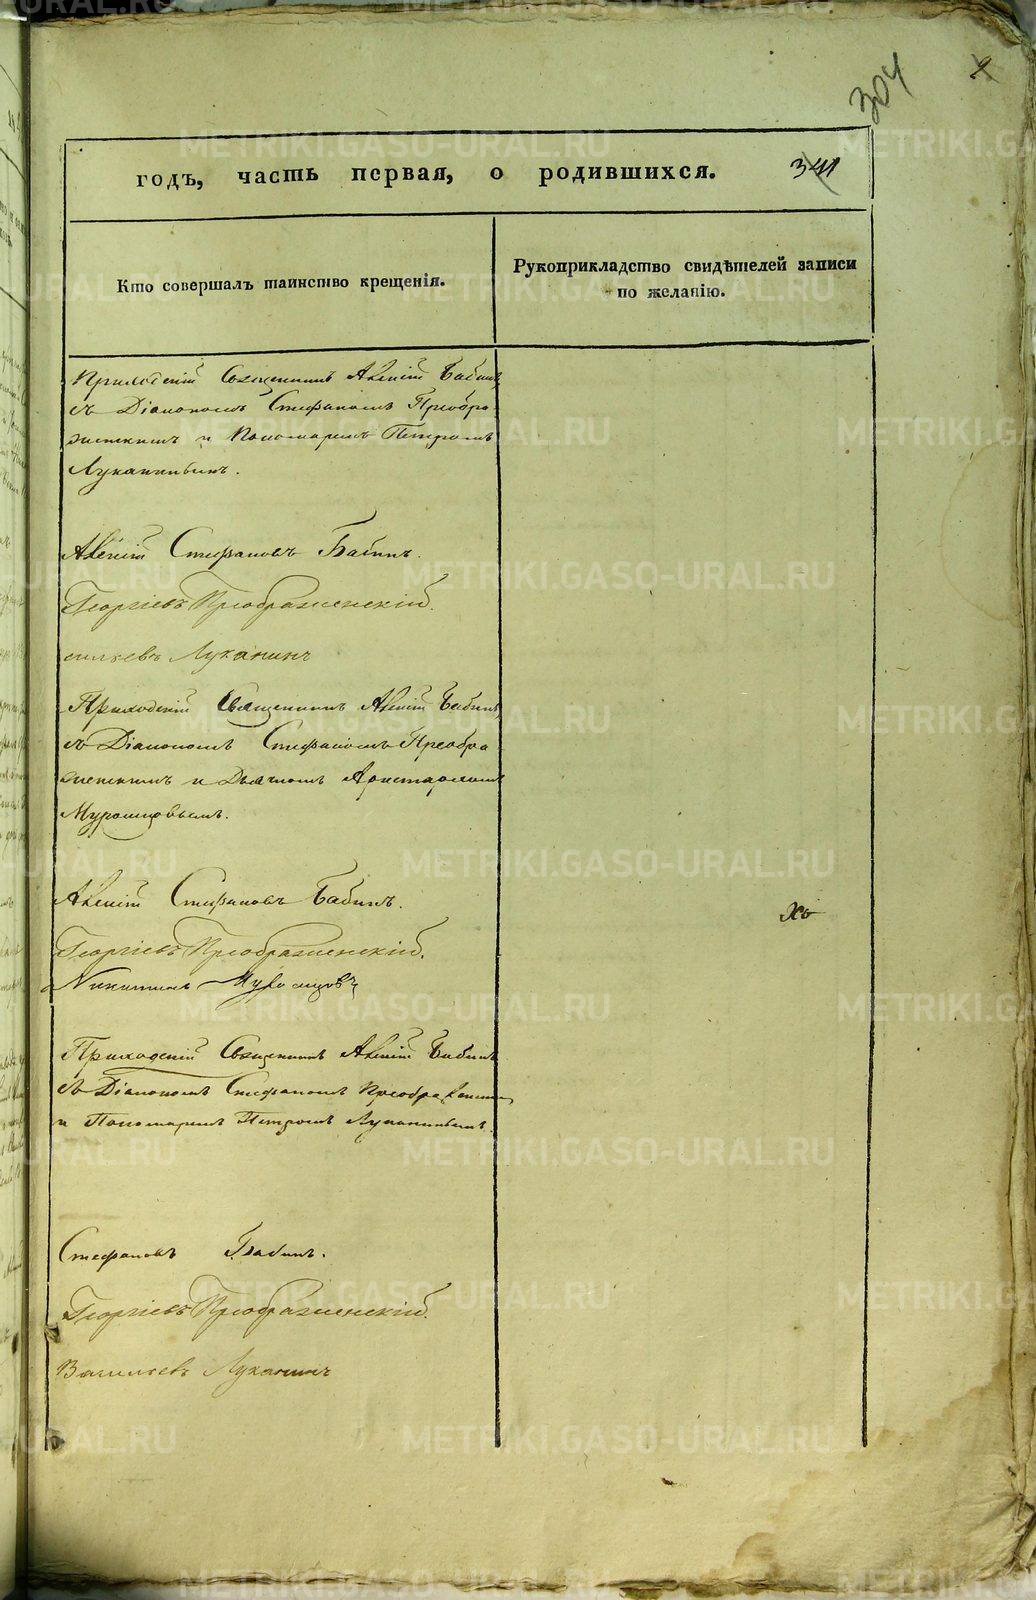 304
годъ, часть первая, о родившихся.
Кто совершалъ таинство крещенія.
Рукоприкладство свидѣтелей записи
по желанію.
Приходскій Священникъ Алексій Бабинъ
съ Діакономъ Стефаномъ Преобра-
женскимъ и Пономаремъ Петромъ
Луканинымъ.
Алексій Стефановъ Бабинъ.
Георгіевъ Преображенскій.
сильевъ Луканинъ
Приходскій Священникъ Алексій Бабинъ
съ Діакономъ Стефаномъ Преобра
женскимъ и Дьячкомъ Аристархомъ
Мурзинцовымъ.
Алексій Стефановъ Бабинъ.
Георгіевъ Преображенскій.
Никитинъ
Приходскій Священникъ Алексій Бабинъ
съ Діакономъ Стефаномъ Преображенским
и Пономаремъ Петромъ Луканинымъ.
Стефановъ Бабинъ.
Георгіевъ Преображенскій.
Васильевъ Луканинъ
METRIKI.GASO-URAL.RU